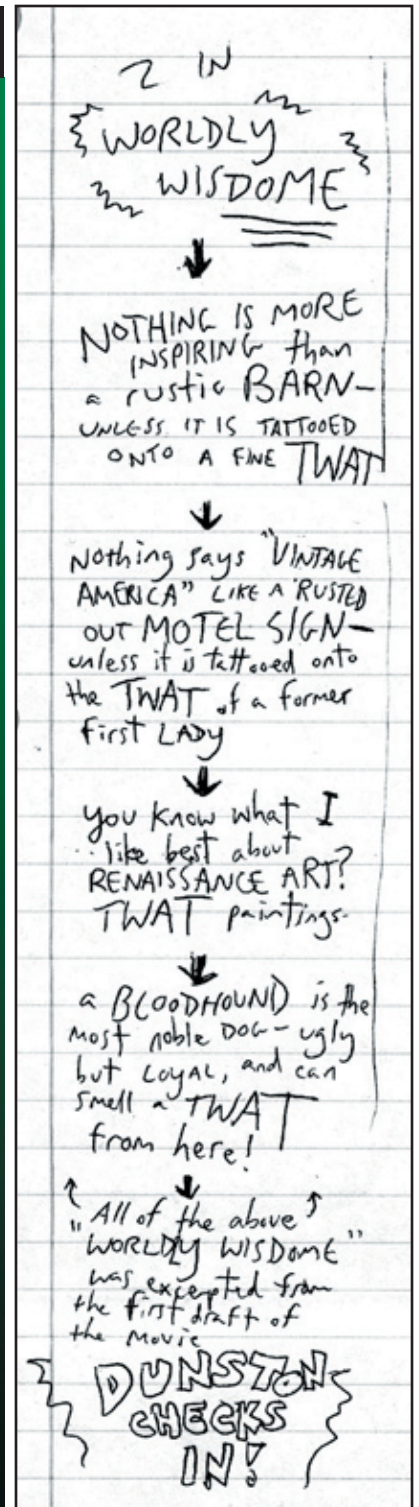 IN
WORLDLY
WISDOME
NOTHING IS MORE
INSPIRING than
a rustic BARN—
UNLESS IT IS TATTOOED
ONTO A FINE TWAT
Nothing says "VINTAGE
AMERICA" LIKE A RUSTED
OUT MOTEL SIGN—
unless it is tattooed onto
the TWAT of a former
first LADY
you know what I
like best about
RENAISSANCE ART?
TWAT paintings.
a BLOODHOUND is the
most noble DOG - ugly
but LOYAL, and can
smell a TWAT
from here!
"All of the above
WORLDLY WISDOME"
was excerpted from
the first draft of
the movie
DUNSTON
CHECKS
IN!